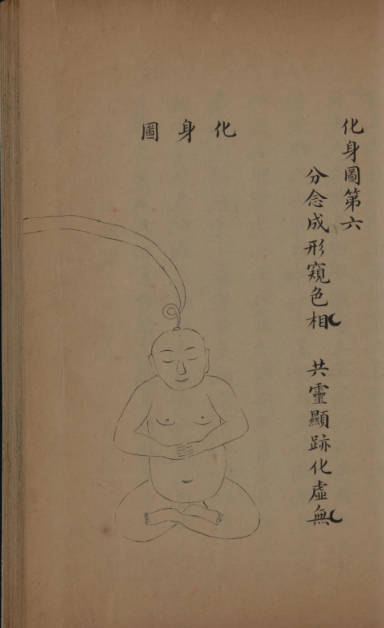 化身圖第六
分念成形窺色相 共靈顯跡化虛無
化身圖